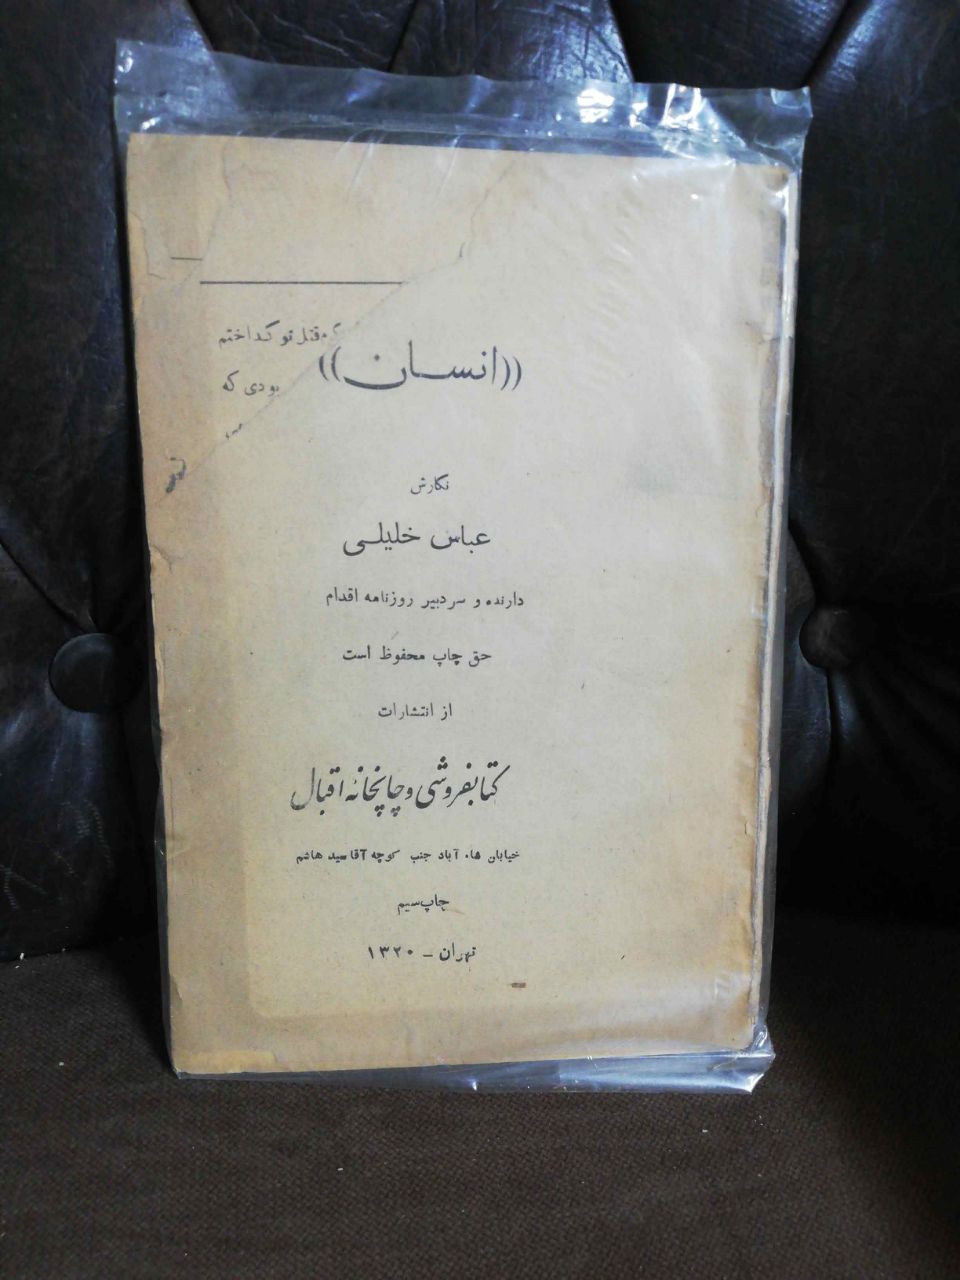 قتل تو گداختم
بودی که
((انسان))
نگارش
عباس خلیلی
دارنده و سردبیر روزنامه اقدام
حق چاپ محفوظ است
از انتشارات
کتابفروشی و چاپخانهٔ اقبال
خیابان شاه آباد جنب کوچه آقا سید هاشم
چاپ سیم
تهران - ۱۳۲۰